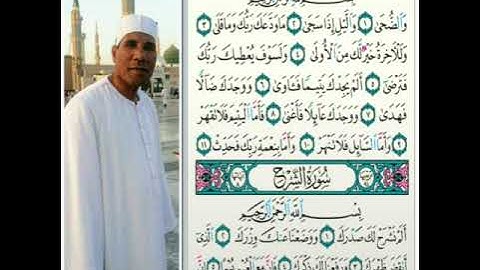 بِسْمِ اللَّهِ الرَّحْمَٰنِ الرَّحِيمِ
وَالضُّحَىٰ ١ وَاللَّيْلِ إِذَا سَجَىٰ ٢ مَا وَدَّعَكَ رَبُّكَ وَمَا قَلَىٰ ٣
وَلَلْآخِرَةُ خَيْرٌ لَّكَ مِنَ الْأُولَىٰ ٤ وَلَسَوْفَ يُعْطِيكَ رَبُّكَ
فَتَرْضَىٰ ٥ أَلَمْ يَجِدْكَ يَتِيمًا فَآوَىٰ ٦ وَوَجَدَكَ ضَالًّا
فَهَدَىٰ ٧ وَوَجَدَكَ عَائِلًا فَأَغْنَىٰ ٨ فَأَمَّا الْيَتِيمَ فَلَا تَقْهَرْ
٩ وَأَمَّا السَّائِلَ فَلَا تَنْهَرْ ١٠ وَأَمَّا بِنِعْمَةِ رَبِّكَ فَحَدِّثْ ١١
سُورَةُ الشَّرْحِ
بِسْمِ اللَّهِ الرَّحْمَٰنِ الرَّحِيمِ
أَلَمْ نَشْرَحْ لَكَ صَدْرَكَ ١ وَوَضَعْنَا عَنكَ وِزْرَكَ ٢ الَّذِي
أَنقَضَ ظَهْرَكَ ٣ وَرَفَعْنَا لَكَ ذِكْرَكَ ٤ فَإِنَّ مَعَ الْعُسْرِ يُسْرًا ٥ إِنَّ